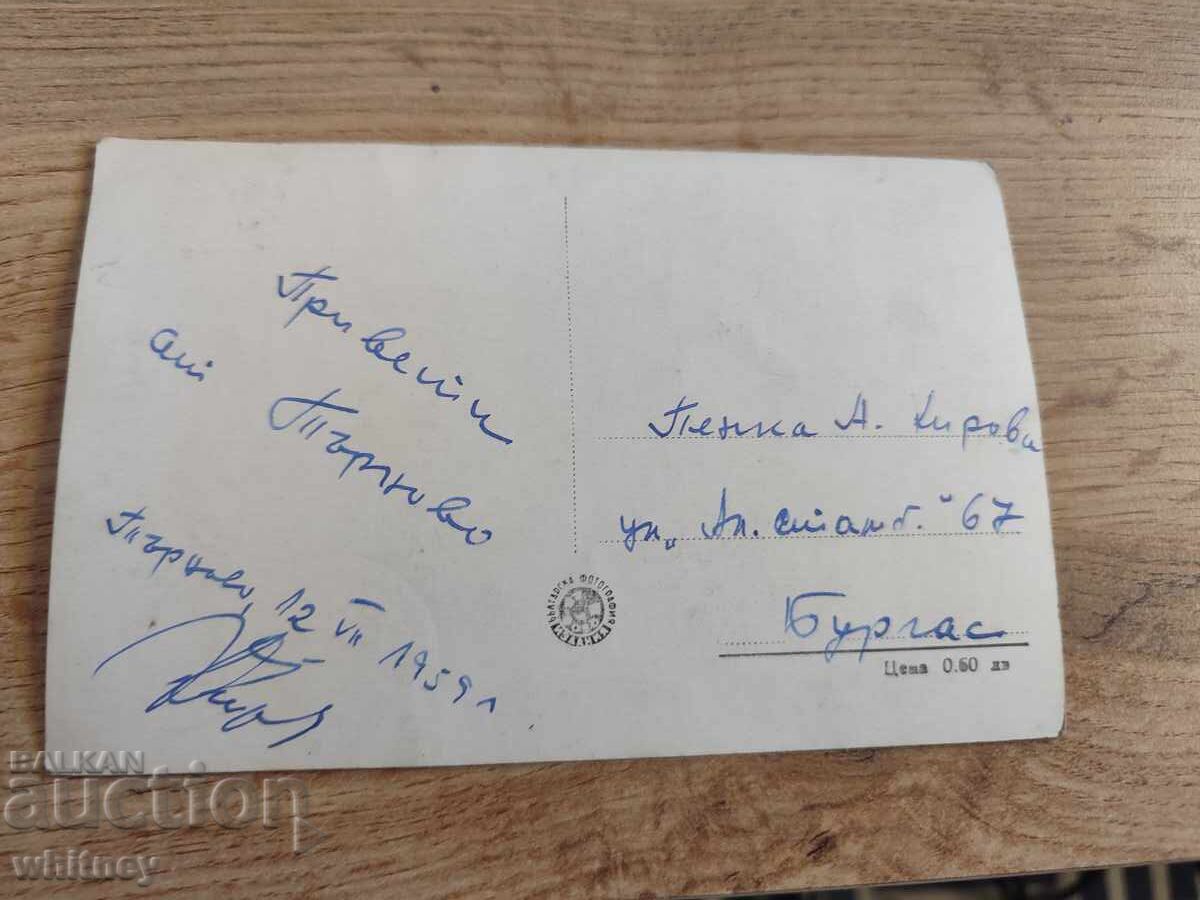 Привети
от Търново
Търново, 12 VII 1959 г
Пенка А. Кирова
ул. „Ал. Стамб." 67
Бургас
БЪЛГАРСКА ФОТОГРАФИЯ
Цена 0.60 лв
BALKAN
auction
whitney